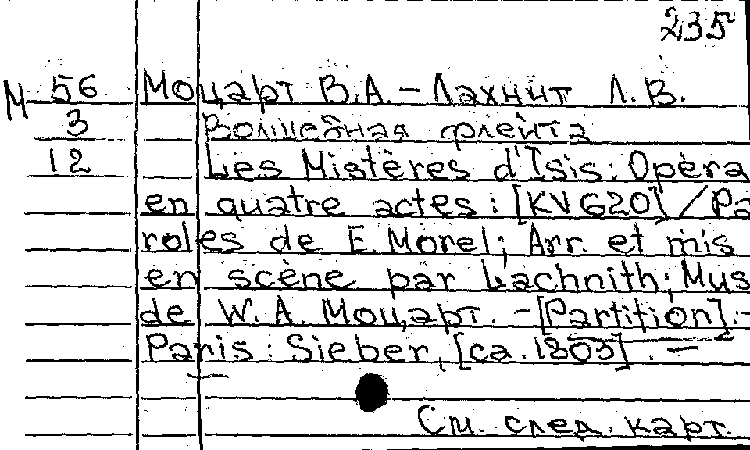 235
М 56 Моцарт В.А. – Лахнит Л.В.
3 Волшебная флейта
12 Les Mistères d'Isis: Opèra
en quatre actes: [KV620] / Pa
roles de E. Morel; Arr. et mis
en scène par Lachnith; Mus
de W. A. Моцарт. – [Partition]. –
Paris: Sieber, [ca. 1803]. –
См. след. карт.